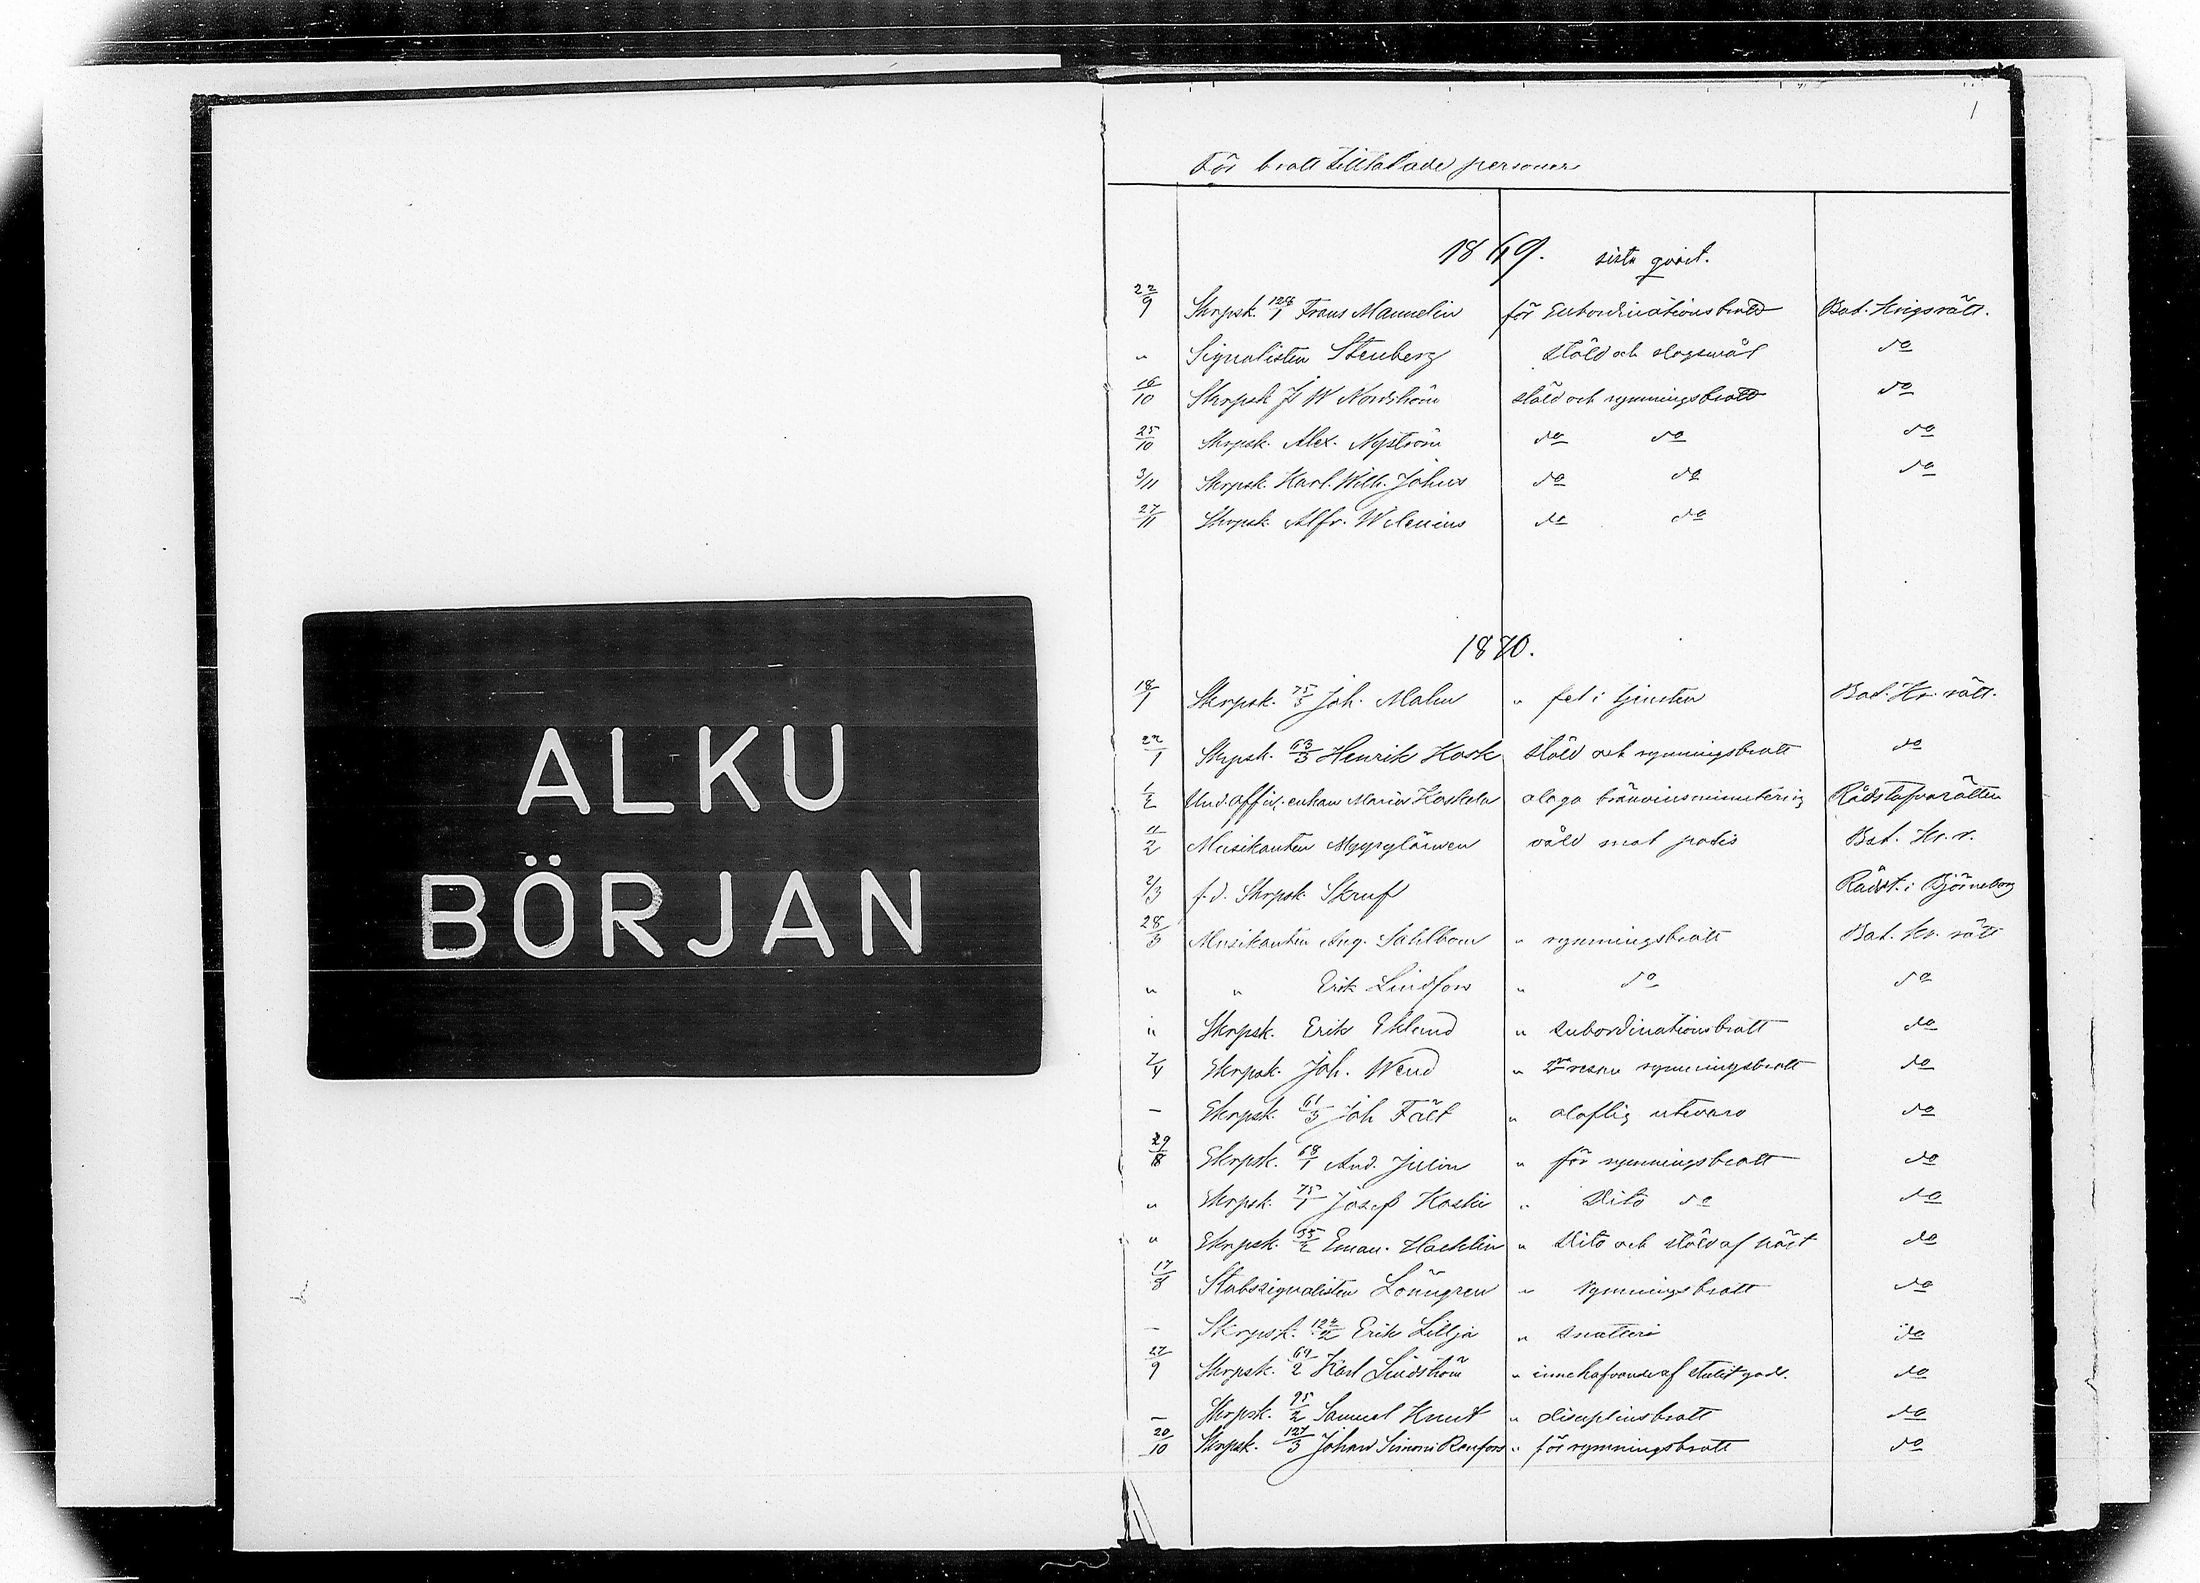 ALKU
BÖRJAN
1
För brott tilltalade personer
1869. sista qvart.
22/9 Skrpsk. 128/1 Frans Mannelin för Subordinationsbrott Bat. Krigsrätt.
" Signalisten Stenberg stöld och slagsmål do
16/10 Skrpsk J W Nordström stöld och rymningsbrott do
25/10 Skrpsk. Alex. Nyström do do do
3/11 Skrpsk. Karl. Wilh. Johns do do do
27/11 Skrpsk. Alfr. Wilenius do do
1870.
18/1 Skrpsk. 75/3 Joh. Malm " fel i tjensten Bat. Kr. rätt.
22/1 Skrpsk. 63/3 Henrik Kosk stöld och rymningsbrott do
1/2 Und.offic. enkan Maria Koskela olaga bränvinsminutering Rådstufvurätten
11/2 Musikanten Myyryläinen våld mot polis Bat. Kr. r.
2/3 f.d. Skrpsk. Skruf Rådst. i Björneborg
28/3 Musikanten Aug. Sahlbom " rymningsbrott Bat. Kr. rätt
" " Erik Lindfors " do do
" Skrpsk. Erik Eklund " subordinationsbrott do
7/4 Skrpsk. Joh. Wend " 2dra resan rymningsbrott do
— Skrpsk. 61/3 Joh Fält " oloflig utevaro do
29/8 Skrpsk. 68/1 And. Julin " för rymningsbrott do
" Skrpsk. 75/1 Josef Koski " Dito do do
" Skrpsk. 55/2 Eman. Hacklin " Dito och stöld af häst do
17/8 Stabssignalisten Lönngren " Rymningsbrott do
— Skrpsk. 122/2 Erik Lillja " snatteri do
27/9 Skrpsk. 69/2 Karl Lindström " innehafvande af stulet gods. do
— Skrpsk. 95/2 Samuel Knut " disciplinsbrott do
20/10 Skrpsk. 127/3 Johan Simon Ranfors " för rymningsbrott do